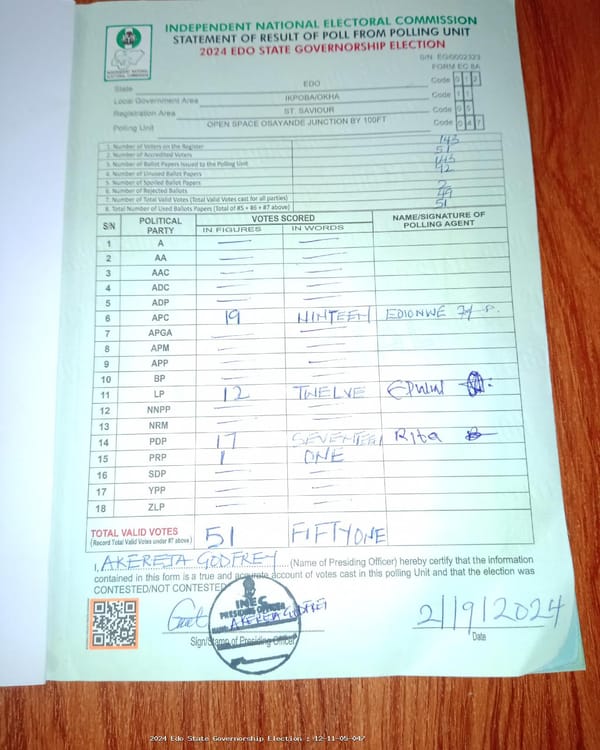 INDEPENDENT NATIONAL ELECTORAL COMMISSION
STATEMENT OF RESULT OF POLL FROM POLLING UNIT
2024 EDO STATE GOVERNORSHIP ELECTION
S/N: EG/0002323
FORM EC 8A
State EDO Code 1 2
Local Government Area IKPOBA/OKHA Code 1 1
Registration Area ST. SAVIOUR Code 0 5
Polling Unit OPEN SPACE OSAYANDE JUNCTION BY 100FT Code 0 4 7
1. Number of Voters on the Register 143
2. Number of Accredited Voters 51
3. Number of Ballot Papers Issued to the Polling Unit 143
4. Number of Unused Ballot Papers 92
5. Number of Spoiled Ballot Papers
6. Number of Rejected Ballots 2
7. Number of Total Valid Votes (Total Valid Votes cast for all parties) 49
8. Total Number of Used Ballots Papers (Total of #5 + #6 + #7 above) 51
S/N POLITICAL PARTY VOTES SCORED NAME/SIGNATURE OF POLLING AGENT
IN FIGURES IN WORDS
1 A
2 AA
3 AAC
4 ADC
5 ADP
6 APC 19 NINTEEN EDIONWE
7 APGA
8 APM
9 APP
10 BP
11 LP 12 TWELVE
12 NNPP
13 NRM
14 PDP 17 SEVENTEEN Rita
15 PRP 1 ONE
16 SDP
17 YPP
18 ZLP
TOTAL VALID VOTES 51 FIFTYONE
(Record Total Valid Votes under #7 above)
I, AKERETA GODFREY (Name of Presiding Officer) hereby certify that the information
contained in this form is a true and accurate account of votes cast in this polling Unit and that the election was
CONTESTED/NOT CONTESTED
INEC
PRESIDING OFFICER
AKERETA GODFREY
2/9/2024
Sign/Stamp of Presiding Officer Date
2024 Edo State Governorship Election : 12-11-05-047